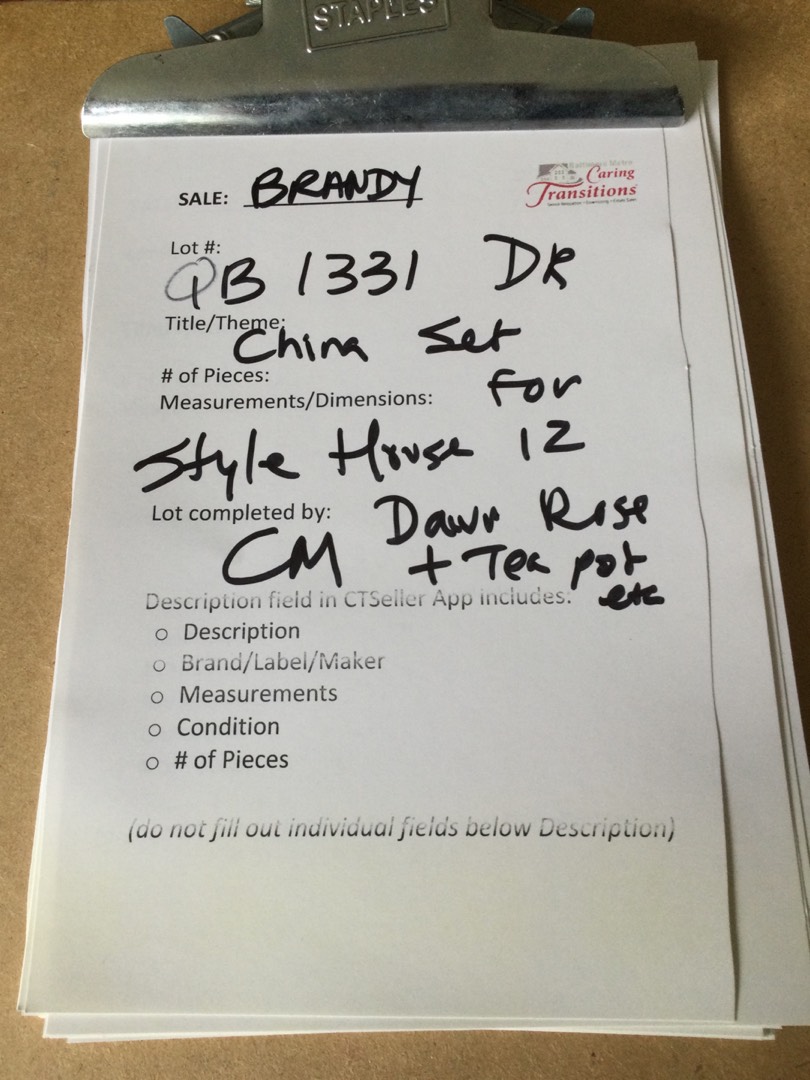 STAPLES
SALE: BRANDY
Caring
Transitions
Lot #:
QB 1331 DR
Title/Theme:
China Set
# of Pieces:
for
Measurements/Dimensions:
Style House 12
Lot completed by: Dawn Rose
CM + Tea pot
etc
Description field in CTSeller App includes:
○ Description
○ Brand/Label/Maker
○ Measurements
○ Condition
○ # of Pieces
(do not fill out individual fields below Description)